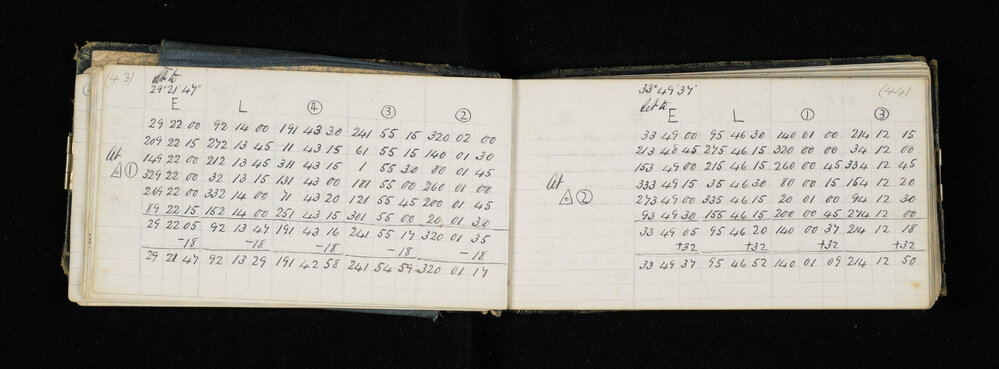 (43)
Set to
29° 21' 47"
E L ④ ③ ②
29 22 00 92 14 00 191 43 30 241 55 15 320 02 00
209 22 15 272 13 45 11 43 15 61 55 15 140 01 30
149 22 00 212 13 45 311 43 15 1 55 30 80 01 45
329 22 00 32 13 15 131 43 00 181 55 00 260 01 00
269 22 00 332 14 00 71 43 20 121 55 45 200 01 45
89 22 15 152 14 00 251 43 15 301 55 00 20 01 30
At
△ ①
29 22 05 92 13 47 191 43 16 241 55 17 320 01 35
-18 -18 -18 -18 -18
29 21 47 92 13 29 191 42 58 241 54 59 320 01 17
(44)
33° 49' 37"
Set to
E L ① ③
33 49 00 95 46 30 140 01 00 214 12 15
213 48 45 275 46 15 320 00 00 34 12 00
153 49 00 215 46 15 260 00 45 334 12 45
333 49 15 35 46 30 80 00 15 154 12 20
273 49 00 335 46 15 20 01 00 94 12 30
93 49 30 155 46 15 200 00 45 274 12 00
At
△ ②
33 49 05 95 46 20 140 00 37 214 12 18
+32 +32 +32 +32
33 49 37 95 46 52 140 01 09 214 12 50